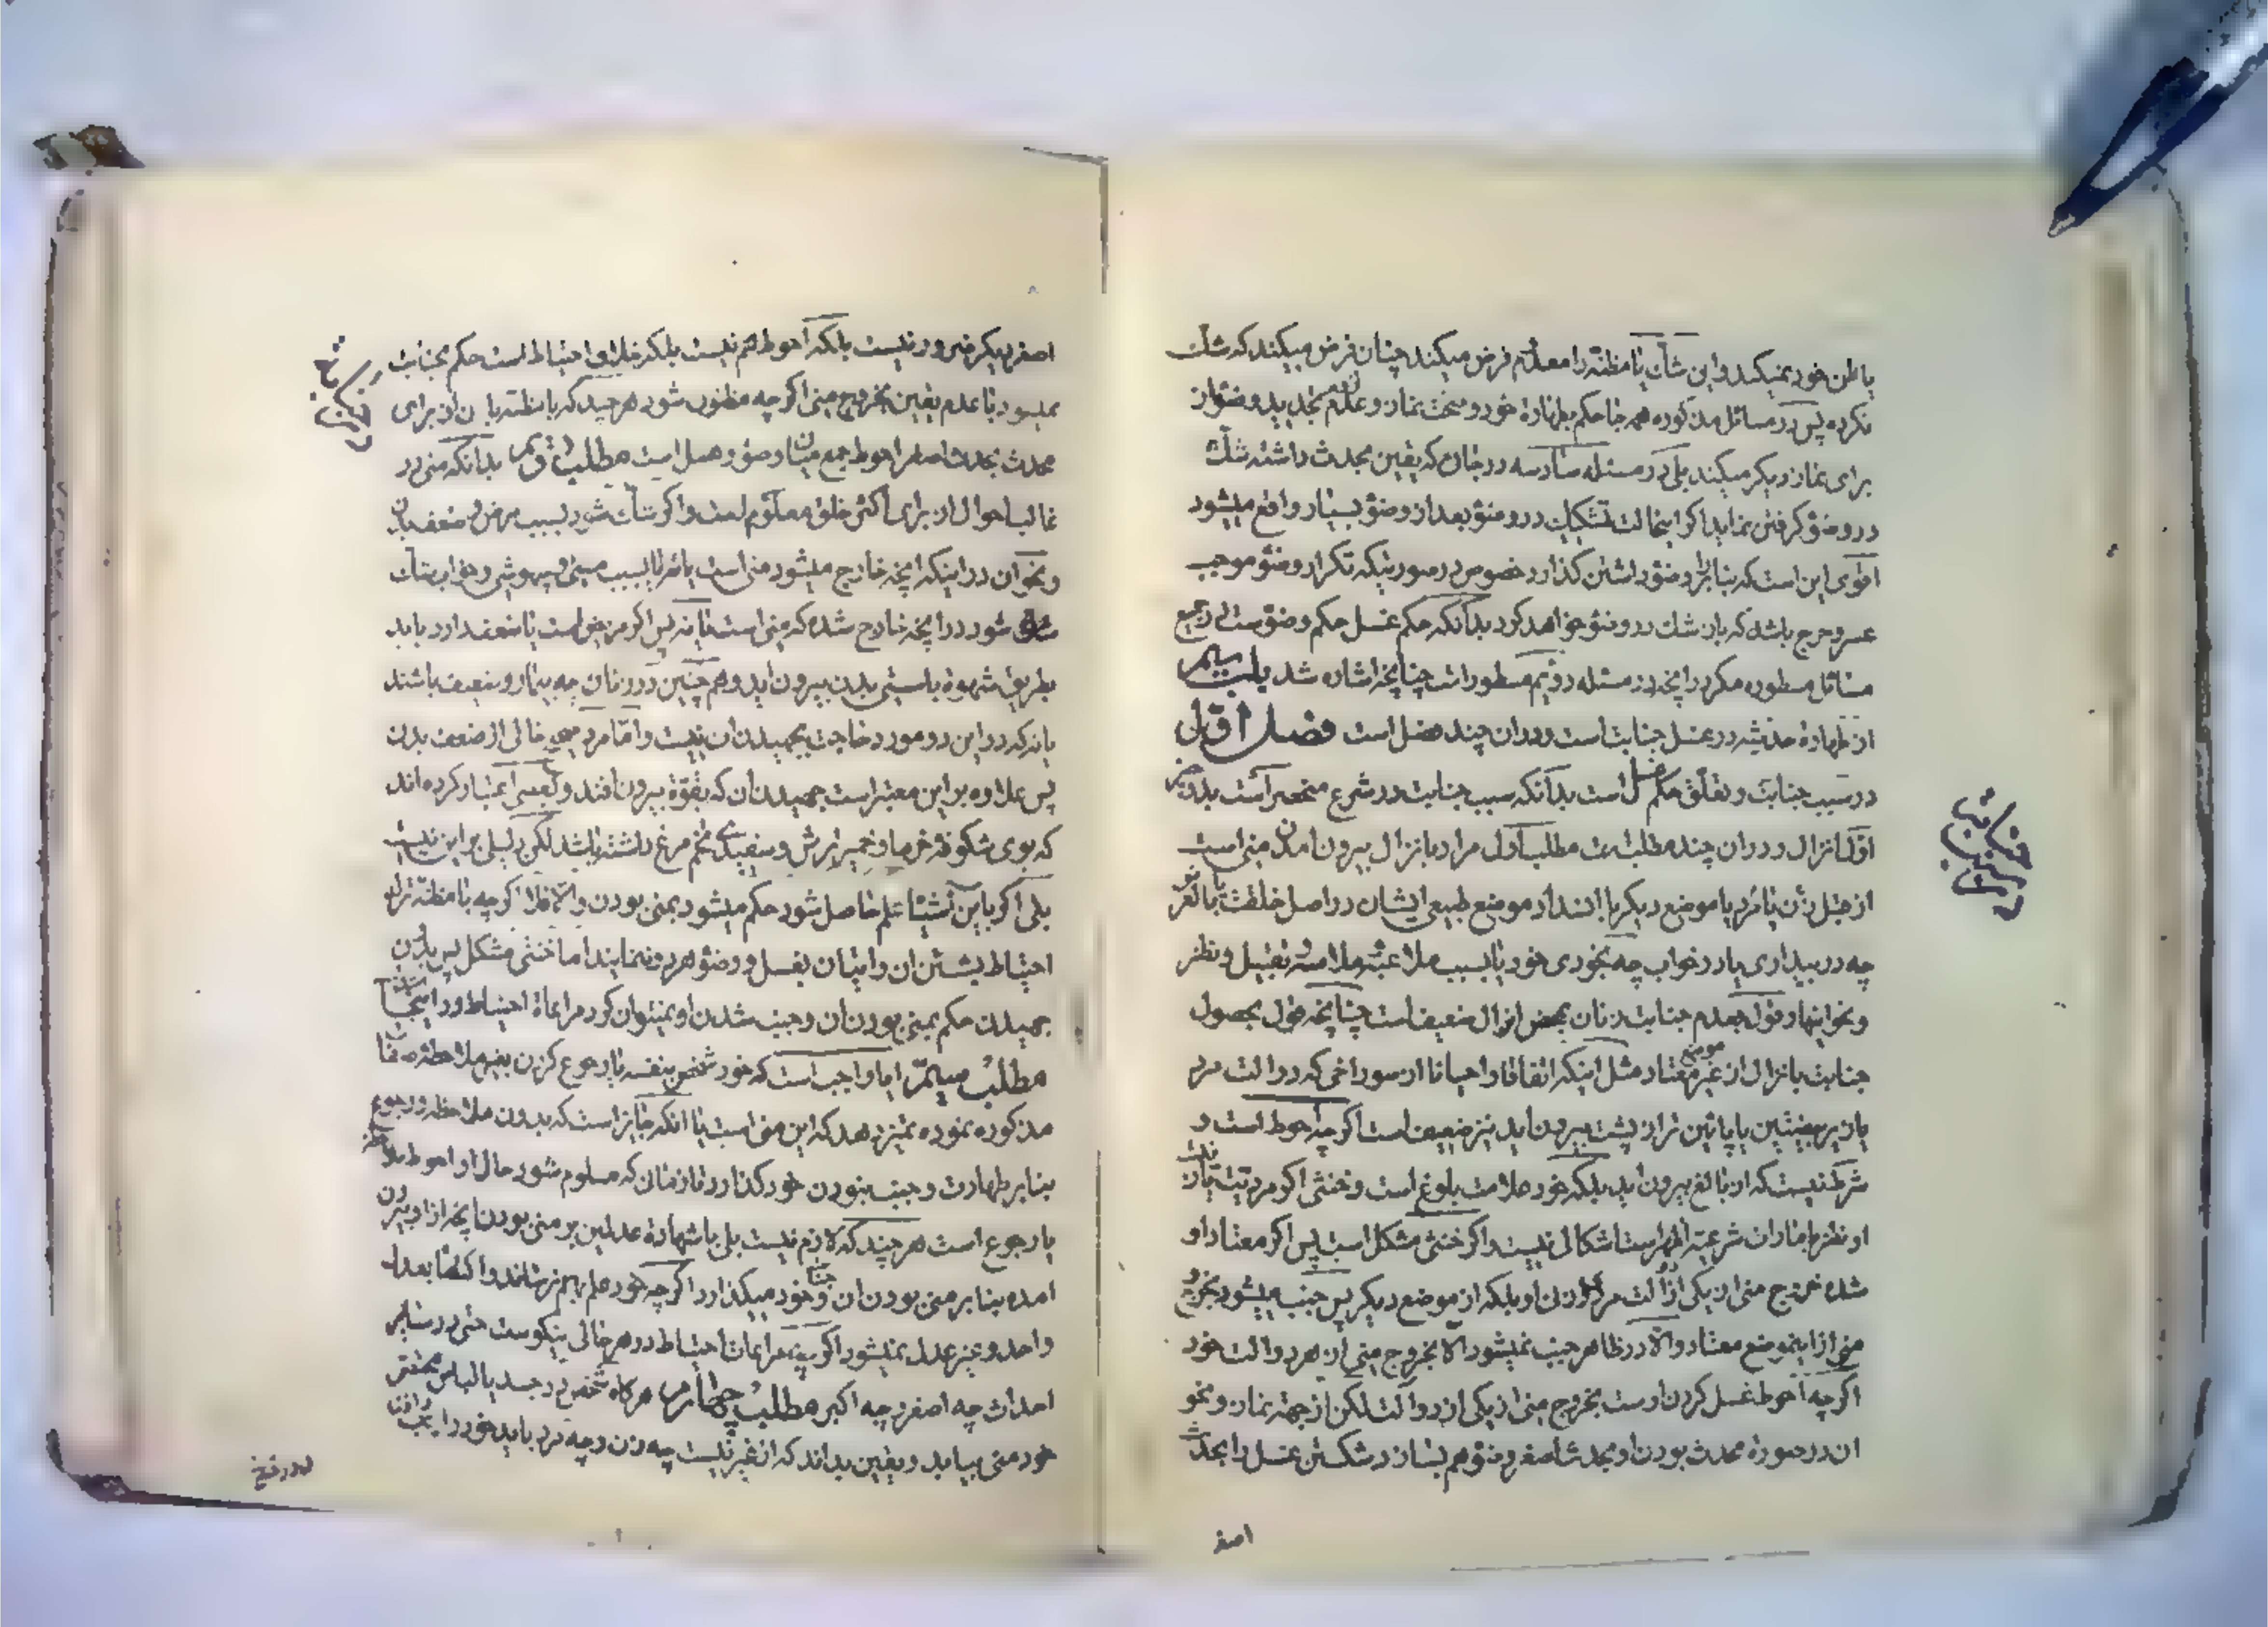 یا ظن خود نمیکند و این شک یا مظنه را معدوم فرض میکند چنان فرض میکند که شک
نکرده پس در مسائل مذکوره همه جا حکم بطهارة خود و صحت نماز و عدم لزوم تجدید وضو از
برای نماز دیگر میکند بلی در مسئله سادسه در جائی که یقین بحدث داشته شک
در وضو گرفتن نماید اگر اینحالت تشکیک در وضو بعد از وضو بسیار واقع میشود
اقوی این است که بنا بر وضو داشتن گذارد خصوص در صورتیکه تکرار وضو موجب
عسر و حرج باشد که بان شک در وضو خواهد کرد بدانکه حکم غسل حکم وضوست در جمیع
مسائل مسطوره مگر در انچه در مسئله دویم مسطور است چنانچه اشاره شد باب سیم
از طهارة حدثیه در غسل جنابت است و در ان چند فصل است فصل اول
در سبب جنابت و تعلق حکم غسل است بدانکه سبب جنابت در شرع منحصر است بدو چیز
اول انزال و در ان چند مطلب است مطلب اول مراد بانزال بیرون امدن منی است
از قبل زن یا مرد یا موضع دیگر با انسداد موضع طبیعی ایشان در اصل خلقت یا بالعرض
چه در بیداری یا در خواب چه بخودی خود یا بسبب ملاعبة و ملامسة و تقبیل و نظر
و نحو اینها و قول بعدم جنابت زنان بمحض انزال ضعیف است چنانچه قول بحصول
جنابت بانزال از غیر موضع معتاد مثل اینکه اتفاقا و احیانا از سوراخی که در الت مرد
یا زیر بیضتین یا پائین تر از پشت بیرون اید نیز ضعیف است اگر چه احوط است و
شرط نیست که از بالغ بیرون اید بلکه خود علامت بلوغ است و خنثی اگر مردیت یا زنیت
او نظر بامارات شرعیه ظاهر است اشکالی نیست و اگر خنثی مشکل است پس اگر معتاد او
شده خروج منی از یکی از الت مردی او یا زنی او بلکه از موضع دیگر پس جنب میشود بخروج
منی از اینموضع معتاد و الا در ظاهر جنب نمیشود الا بخروج منی از هر دو الت خود
اگر چه احوط غسل کردن اوست بخروج منی از یکی از دو الت لکن از جهة نماز و نحو
ان در صورة محدث بودن او بحدث اصغر وضو هم بسازد و شکستن غسل را بحدث
اصغر
اصغر دیگر ضرور نیست بلکه احوط هم نیست بلکه خلاف احتیاط است حکم بجنابت
نمیشود با عدم یقین بخروج منی اگر چه مظنون شود هر چند که با مظنه بان از برای
محدث بحدث اصغر احوط جمع میان وضو و غسل است مطلب دویم بدانکه منی در
غالب احوال از برای اکثر خلق معلوم است و اگر شک شود بسبب مرض و ضعف بدن
و نحو ان در اینکه انچه خارج میشود منی است یا نه یا بسبب مستی و بیهوشی و خواب شک
شود در انچه خارج شده که منی است یا نه پس اگر مریض است یا ضعف دارد باید
بطریق شهوة با سستی بدن بیرون اید و هم چنین در زنان چه بیمار و ضعیف باشند
یا نه که در این دو مورد حاجت بجهیدن ان نیست و اما مرد خالی از ضعف بدن
پس علاوه بر این معتبر است جهیدن ان که بقوة بیرون افتد و بعضی اعتبار کرده اند
که بوی شکوفه خرما و خمیر ترش و سفیدی تخم مرغ داشته باشد لکن دلیلی بر این نیست
بلی اگر باین اشیا علم حاصل شود حکم میشود بمنی بودن و الا فلا اگر چه با مظنه ترک
احتیاط بشستن ان و اتیان بغسل و وضو هر دو ننمایند اما خنثی مشکل پس بدون
جهیدن حکم بمنی بودن ان و جنب شدن او نمیتوان کرد مراعاة احتیاط در اینجا
مطلب سیم ایا واجب است که خود شخص بنفسه یا رجوع کردن بغیر ملاحظه صفات
مذکوره نموده تمیز دهد که این منی است یا انکه جایز است که بدون ملاحظه و رجوع
بنا بر طهارت و جنب نبودن خود گذارد تا زمان که معلوم شود حال او احوط ملاحظه
یا رجوع است هر چند که لازم نیست بلی با شهادة عدلین بر منی بودن انچه از او بیرون
امده بنا بر منی بودن ان و جنابت خود میگذارد اگر چه خود علم بهم نرساند و اکتفا بعدل
واحد و غیر عدل نمیشود اگر چه مراعات احتیاط در هر حالی نیکوست حتی در سایر
احداث چه اصغر و چه اکبر مطلب چهارم هر گاه شخص در جسد یا لباس مختص
خود منی بیابد و یقین بداند که از غیر نیست چه زن و چه مرد باید خود را